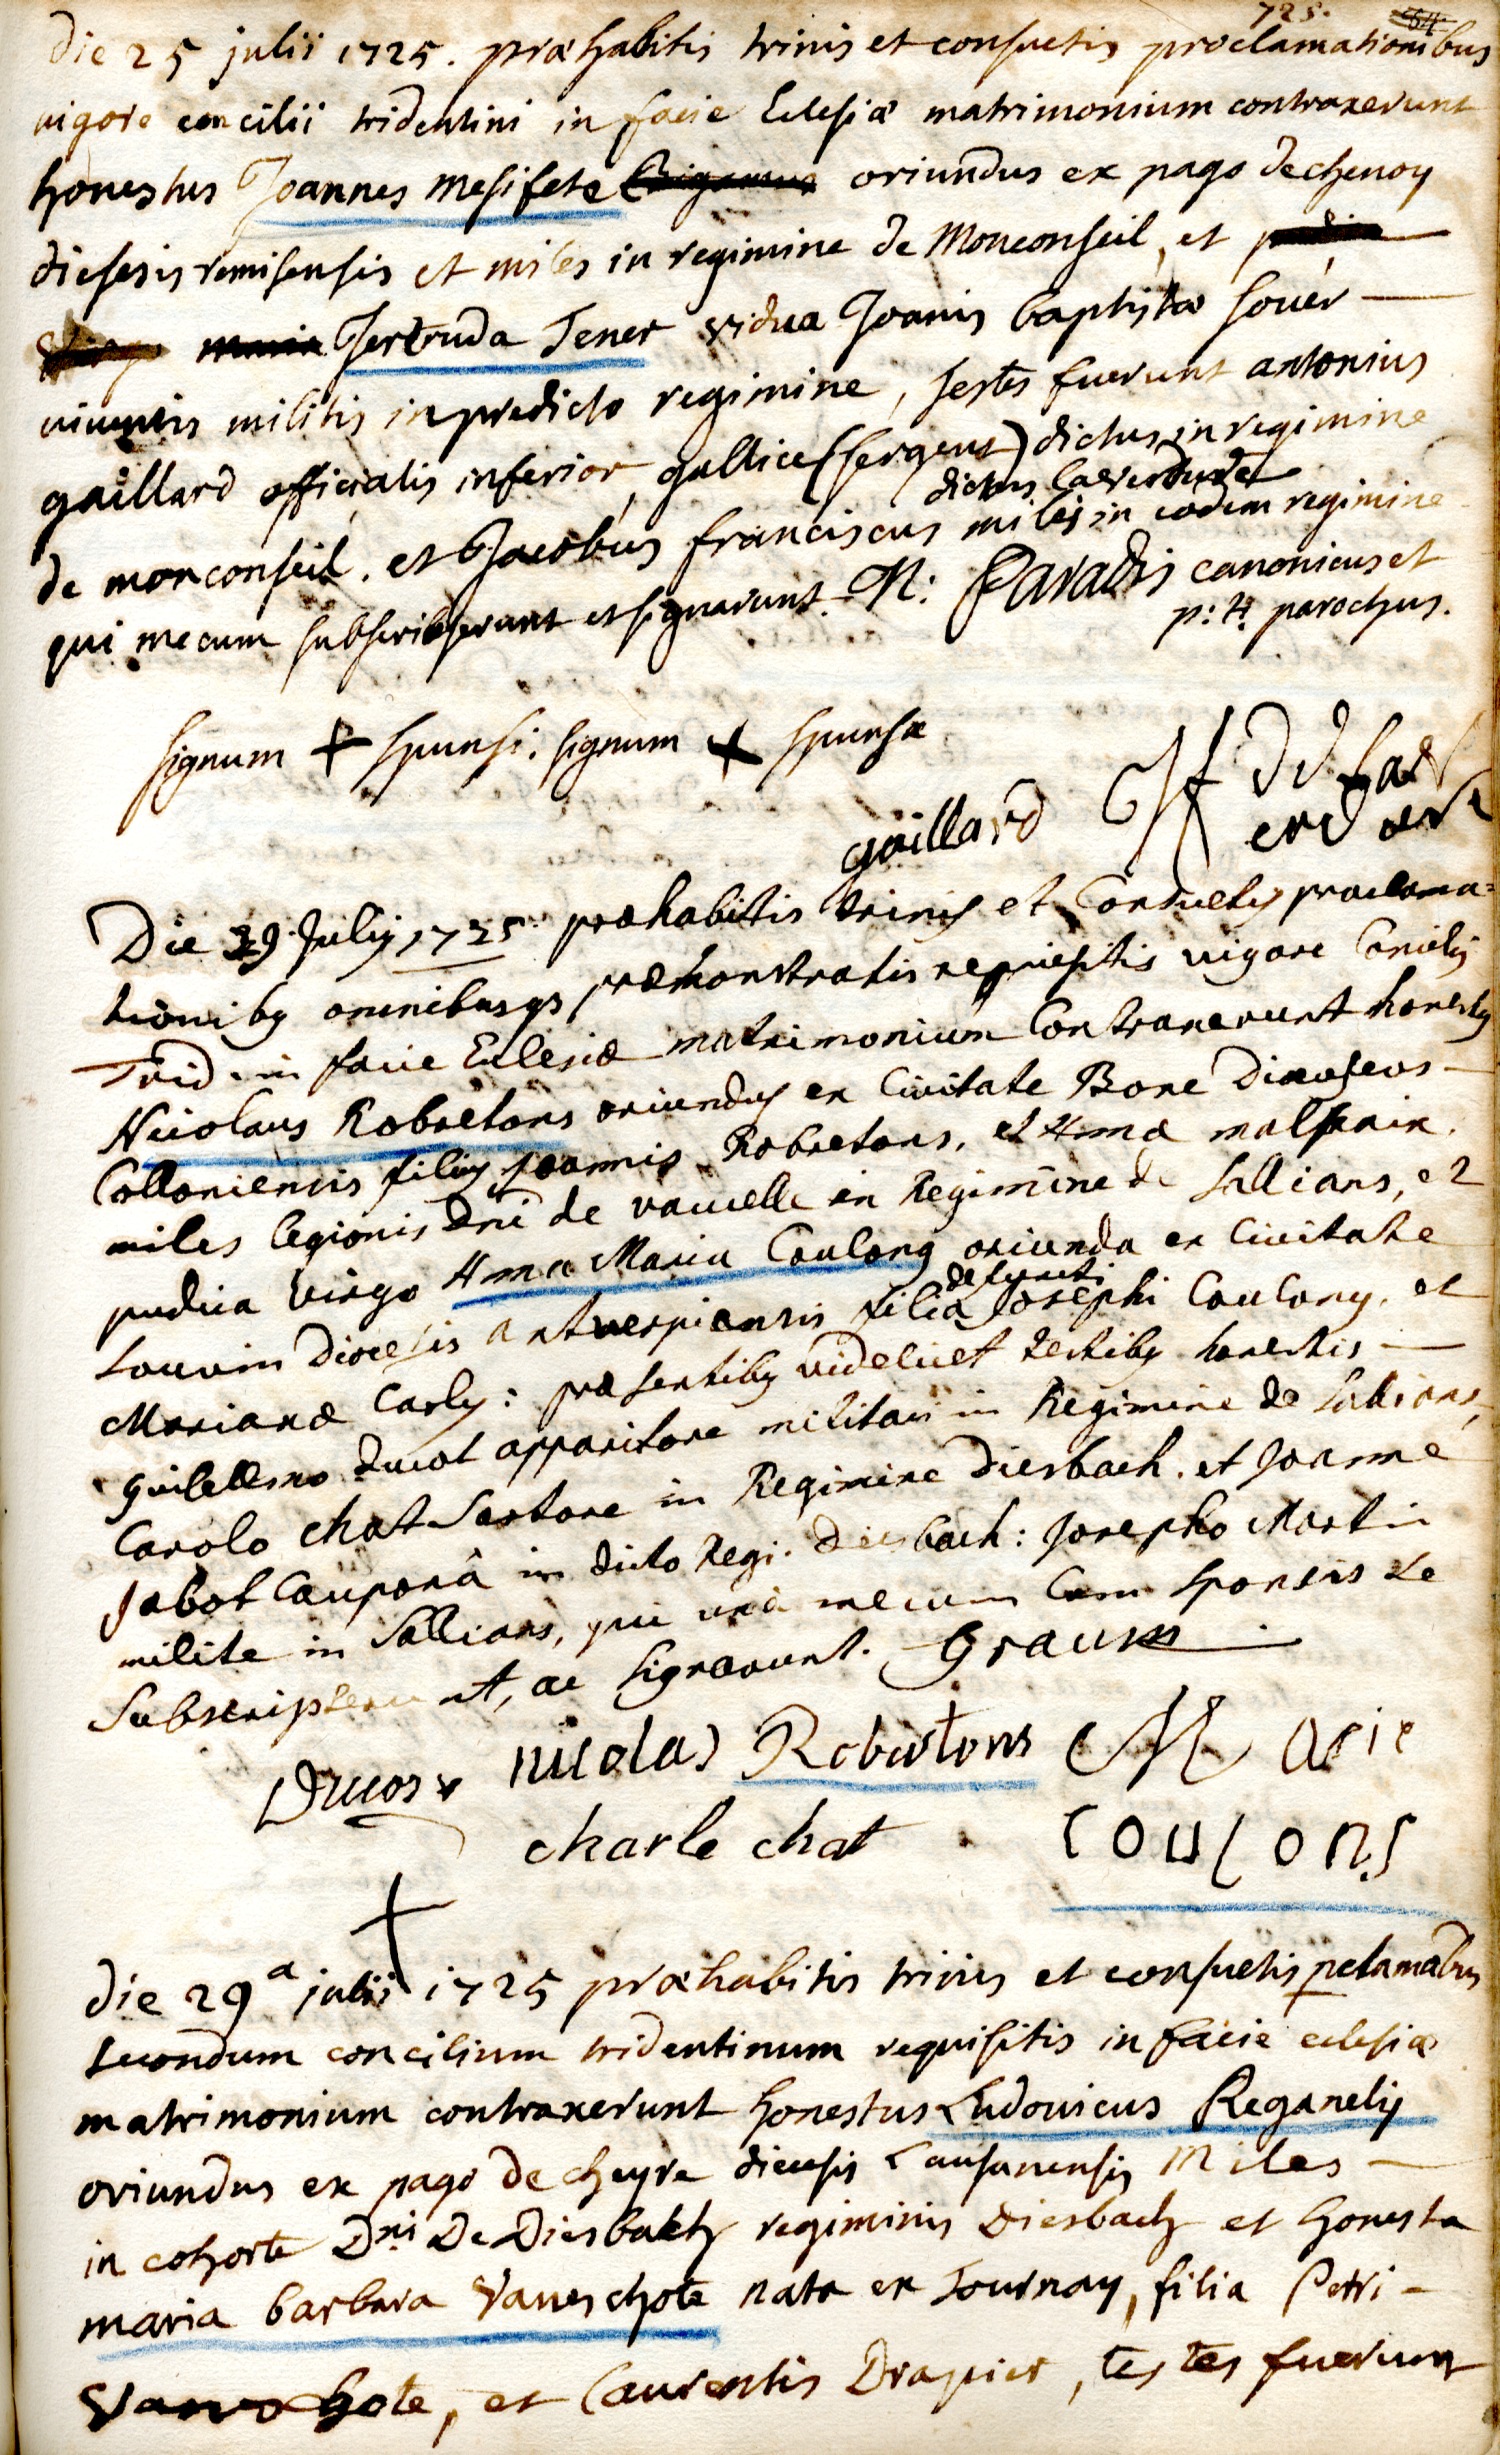 725.
die 25 julii 1725. præhabitis trinis et consuetis proclamationibus
vigore concilii tridentini in facie Eclesiæ matrimonium contraxerunt
honestus Joannes Mesifete oriundus ex pago dechenoy
diesesis remisensis et miles in regimine de Monconseil, et
Jertruda Tener vidua Joanis baptistæ Soüer
viventis militis in predicto regimine, testes fuerunt antonius
gaillard officialis inferior, gallice (sergent) dictus in regimine
dictus laverdure
de monconseil. et Jacobus franciscus miles in eodem regimine
qui mecum subscribserunt et signarunt. N: Paradis canonicus et
p: t. parochus.
signum + spunsi. signum + spunsæ
gaillard
Die 29 July 1725 præhabitis trinis et Consuetis proclama=
tionibq omnibusqs præmonstratis requisitis vigore Concily
Trid. in facie Eclesiæ matrimonium Contraxerunt honestq
Nicolaus Robretons oriundq ex Civitate Bone Diæusevs
Colloniensis filiq Joannis Robretons, et Annæ malpaix.
miles legionis Dni de vaucelle in Regimine de Sallians, et
pudica virgo Anna Maria Coulong oriunda ex Civitate
defuncti
Louvin Diocesis antverpiensis filia Josephi Coulong, et
Marianæ Carly: præsentibq videlicet testibq honestis
guilellmo Ducot apparitore militari in Regimine de Sallians,
Carolo Chat Sartore in Regimine Diesbach. et Joanne
Jabot Cauponâ in dicto Regi. Diesbach: Josepho Martin
milite in Sallians, qui unà mecum Cum Sponsis se
Subscripserunt, ac Signarunt. Graux
Ducos nicolas Robertons Marie
charle chat coulons
die 29a julii 1725 præhabitis trinis et consuetis pclamabus
secondum concilium tridentinum requisitis in facie eclesiæ
matrimonium contraxerunt honestus Ludovicus Reganely
oriundus ex pago de cheyre diecesis Lausanensis Miles
in cohorte Dni De Diesbakh regiminis Diesbach et honesta
maria barbara Vaneschote nata ex Tournay, filia Petri
Vanschote, et Laurentis Drapier, testes fuerunt